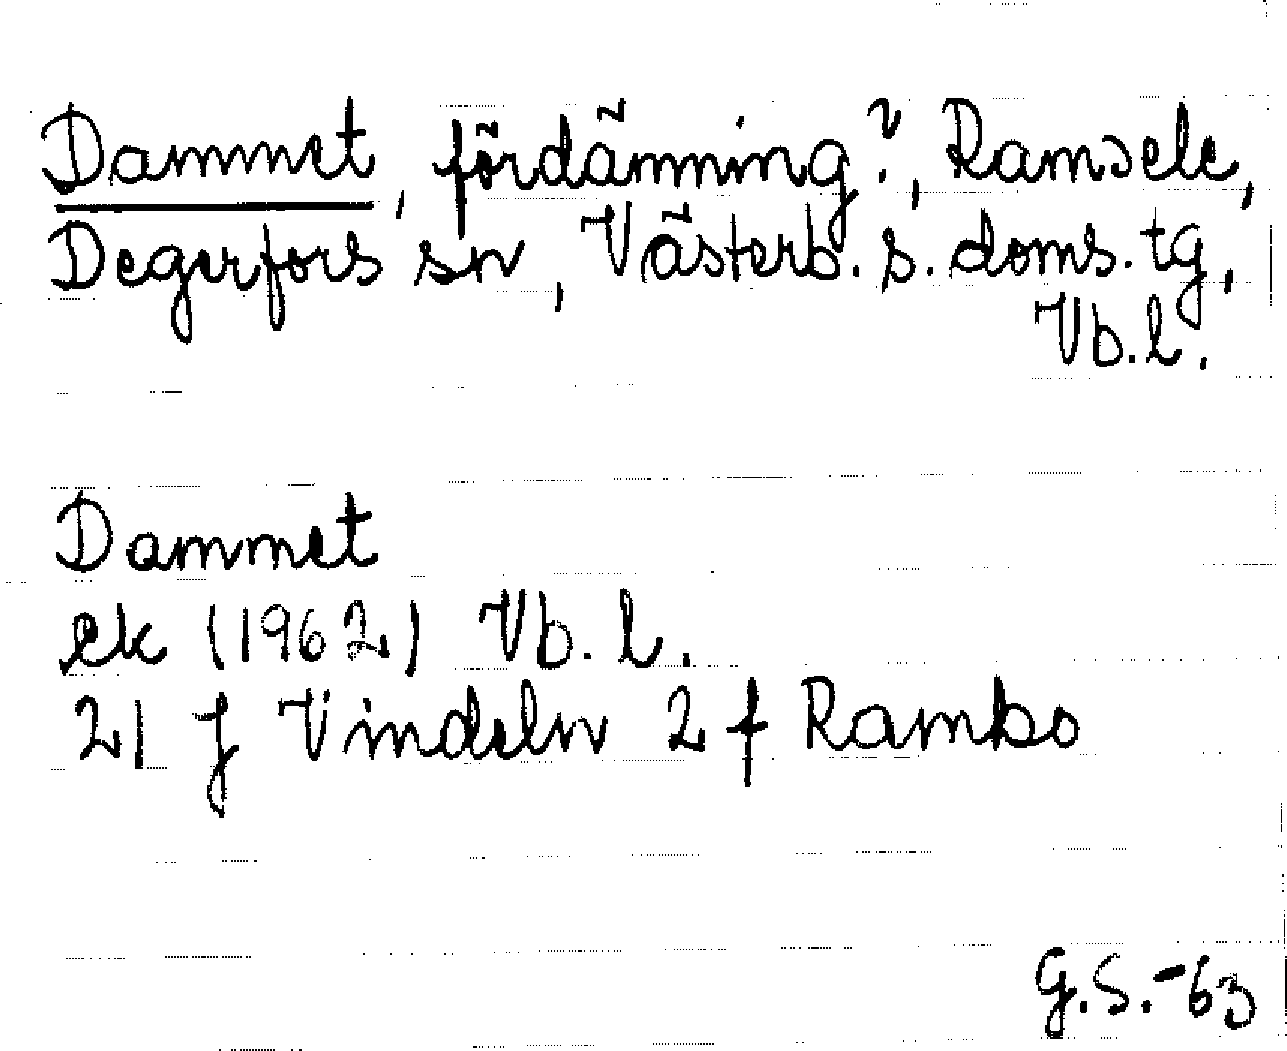 Dammet, fördämning?, Ramsele,
Degerfors sn, Västerb. s. doms. tg,
Vb. l.
Dammet
ek (1962) Vb. l.
21 J Vindeln 2 f Rambo
G.S.-63